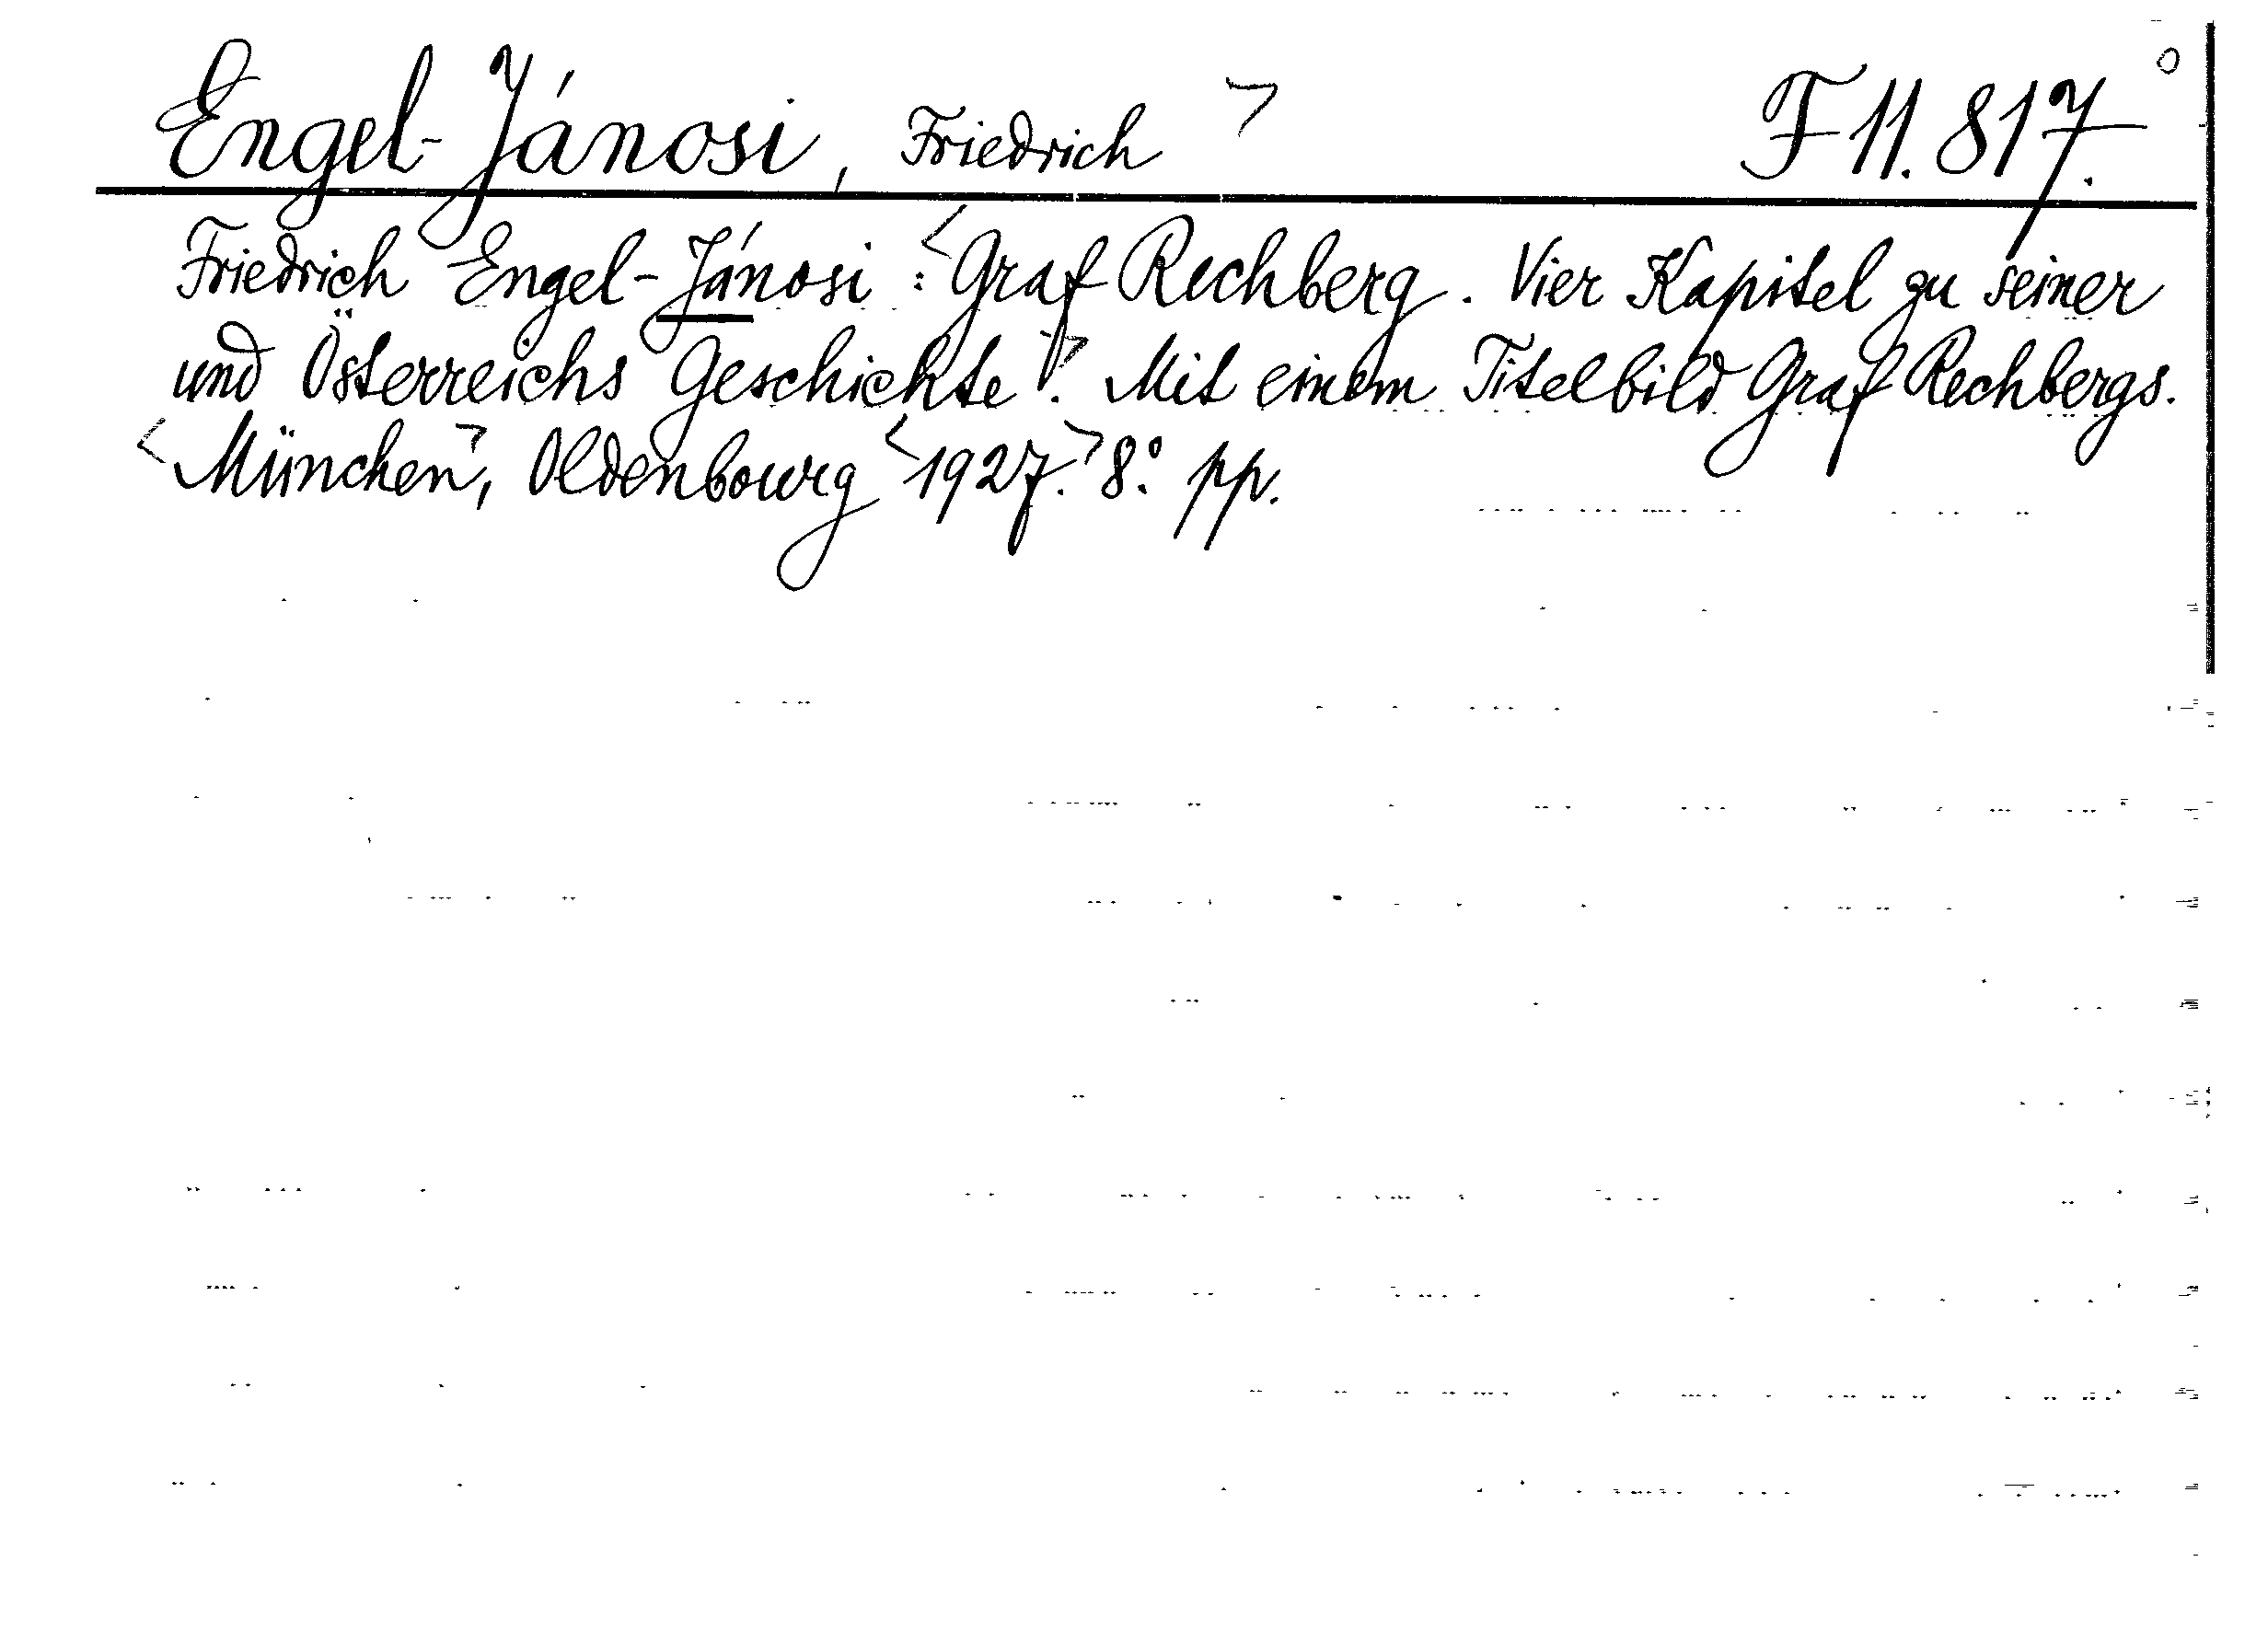 Engel-Jánosi, Friedrich > F 11.817.
Friedrich Engel-Jánosi : <Graf Rechberg. Vier Kapitel zu seiner
und Österreichs Geschichte>. Mit einem Titelbild Graf Rechbergs.
<München>, Oldenbourg <1927.> 8.° pp.